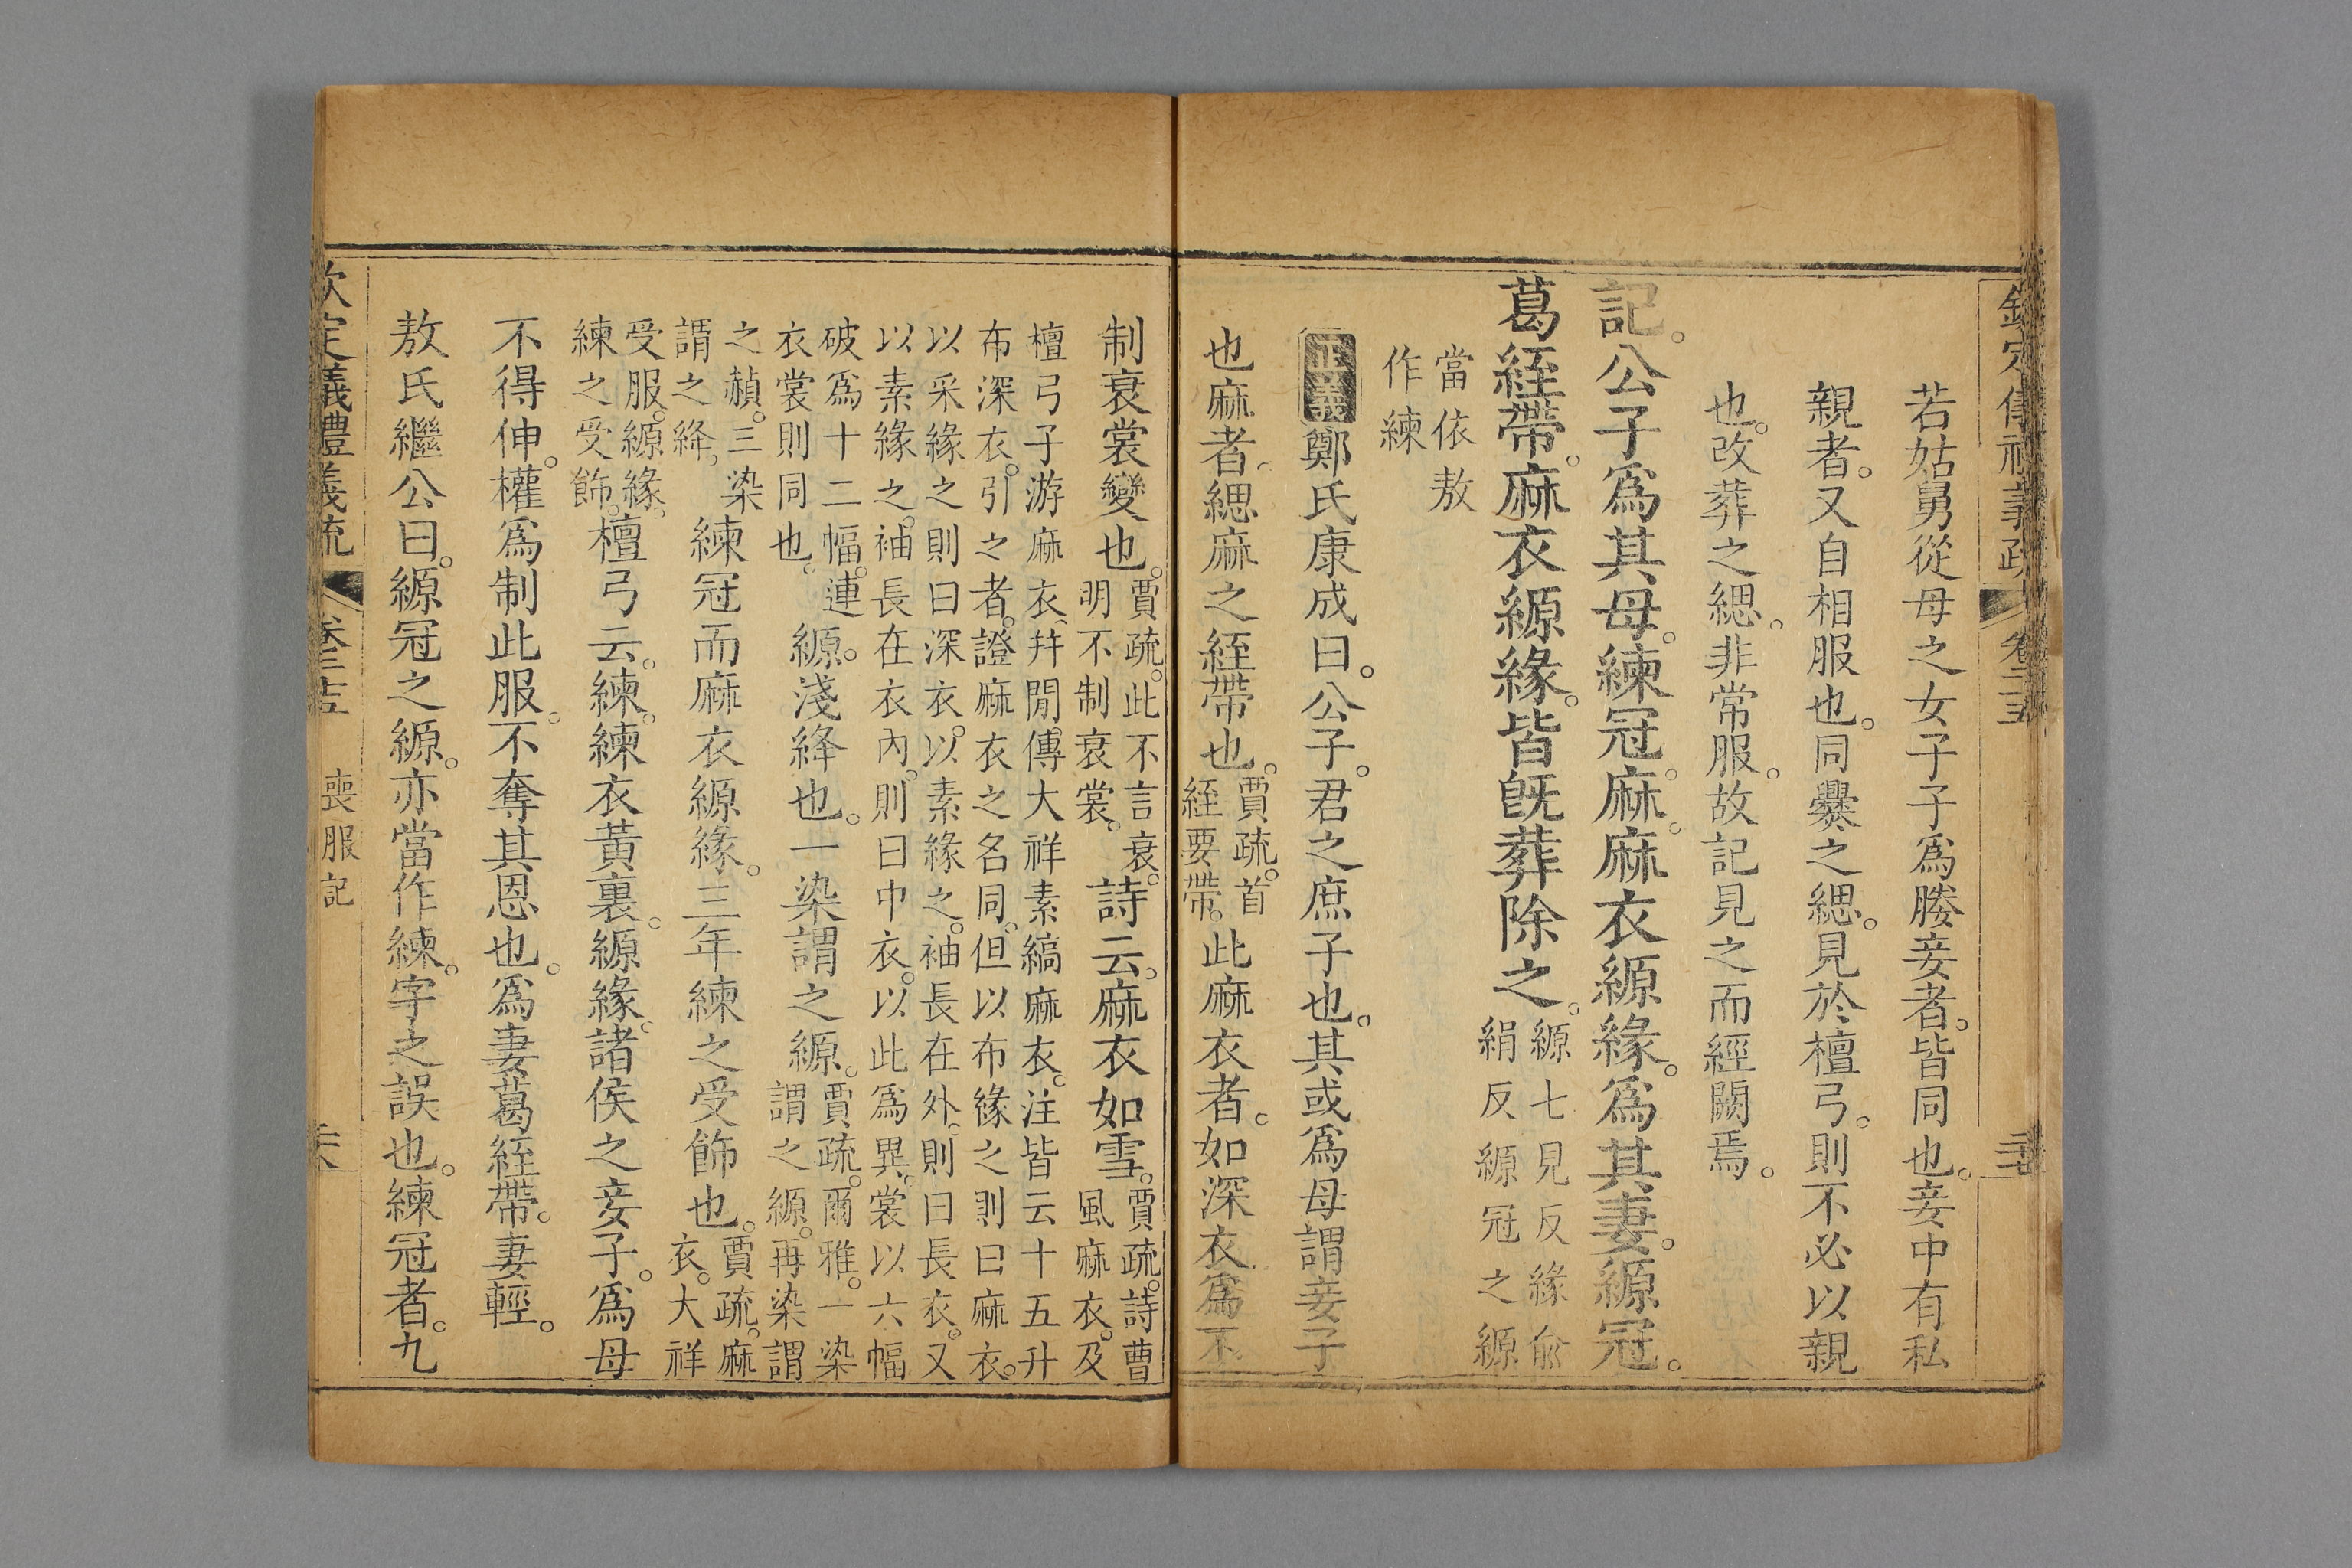 欽定儀禮義疏 卷二十五
若姑舅從母之女子子爲媵妾者。皆同也。妾中有私
親者。又自相服也。同爨之緦。見於檀弓。則不必以親
也。改葬之緦。非常服。故記見之而經闕焉。
記。公子爲其母。練冠。麻。麻衣縓緣。爲其妻。縓冠。
葛絰帶。麻衣縓緣。皆旣葬除之。縓七見反緣兪
絹反縓冠之縓
當依敖
作練
正義鄭氏康成曰。公子。君之庶子也。其或爲母謂妾子
也麻者。緦麻之絰帶也。賈疏。首
絰要帶。此麻衣者。如深衣爲不
制衰裳變也。賈疏。此不言衰。
明不制衰裳。詩云。麻衣如雪。賈疏。詩曹
風麻衣。及
檀弓子游麻衣、幷閒傳大祥素縞麻衣。注皆云十五升
布深衣。引之者。證麻衣之名同。但以布緣之則曰麻衣。
以采緣之則曰深衣。以素緣之。袖長在外、則曰長衣。又
以素緣之。袖長在衣內。則曰中衣。以此爲異。裳以六幅
破爲十二幅。連
衣裳則同也。縓。淺絳也。一染謂之縓。賈疏。爾雅。一染
謂之縓。再染謂
之赬。三染
謂之絳。練冠而麻衣縓緣。三年練之受飾也。賈疏。麻
衣。大祥
受服。縓緣。
練之受飾。檀弓云。練。練衣黃裏。縓緣。諸侯之妾子。爲母
不得伸。權爲制此服。不奪其恩也。爲妻葛絰帶。妻輕。
敖氏繼公曰。縓冠之縓。亦當作練。字之誤也。練冠者。九
欽定儀禮義疏 卷二十五 喪服記